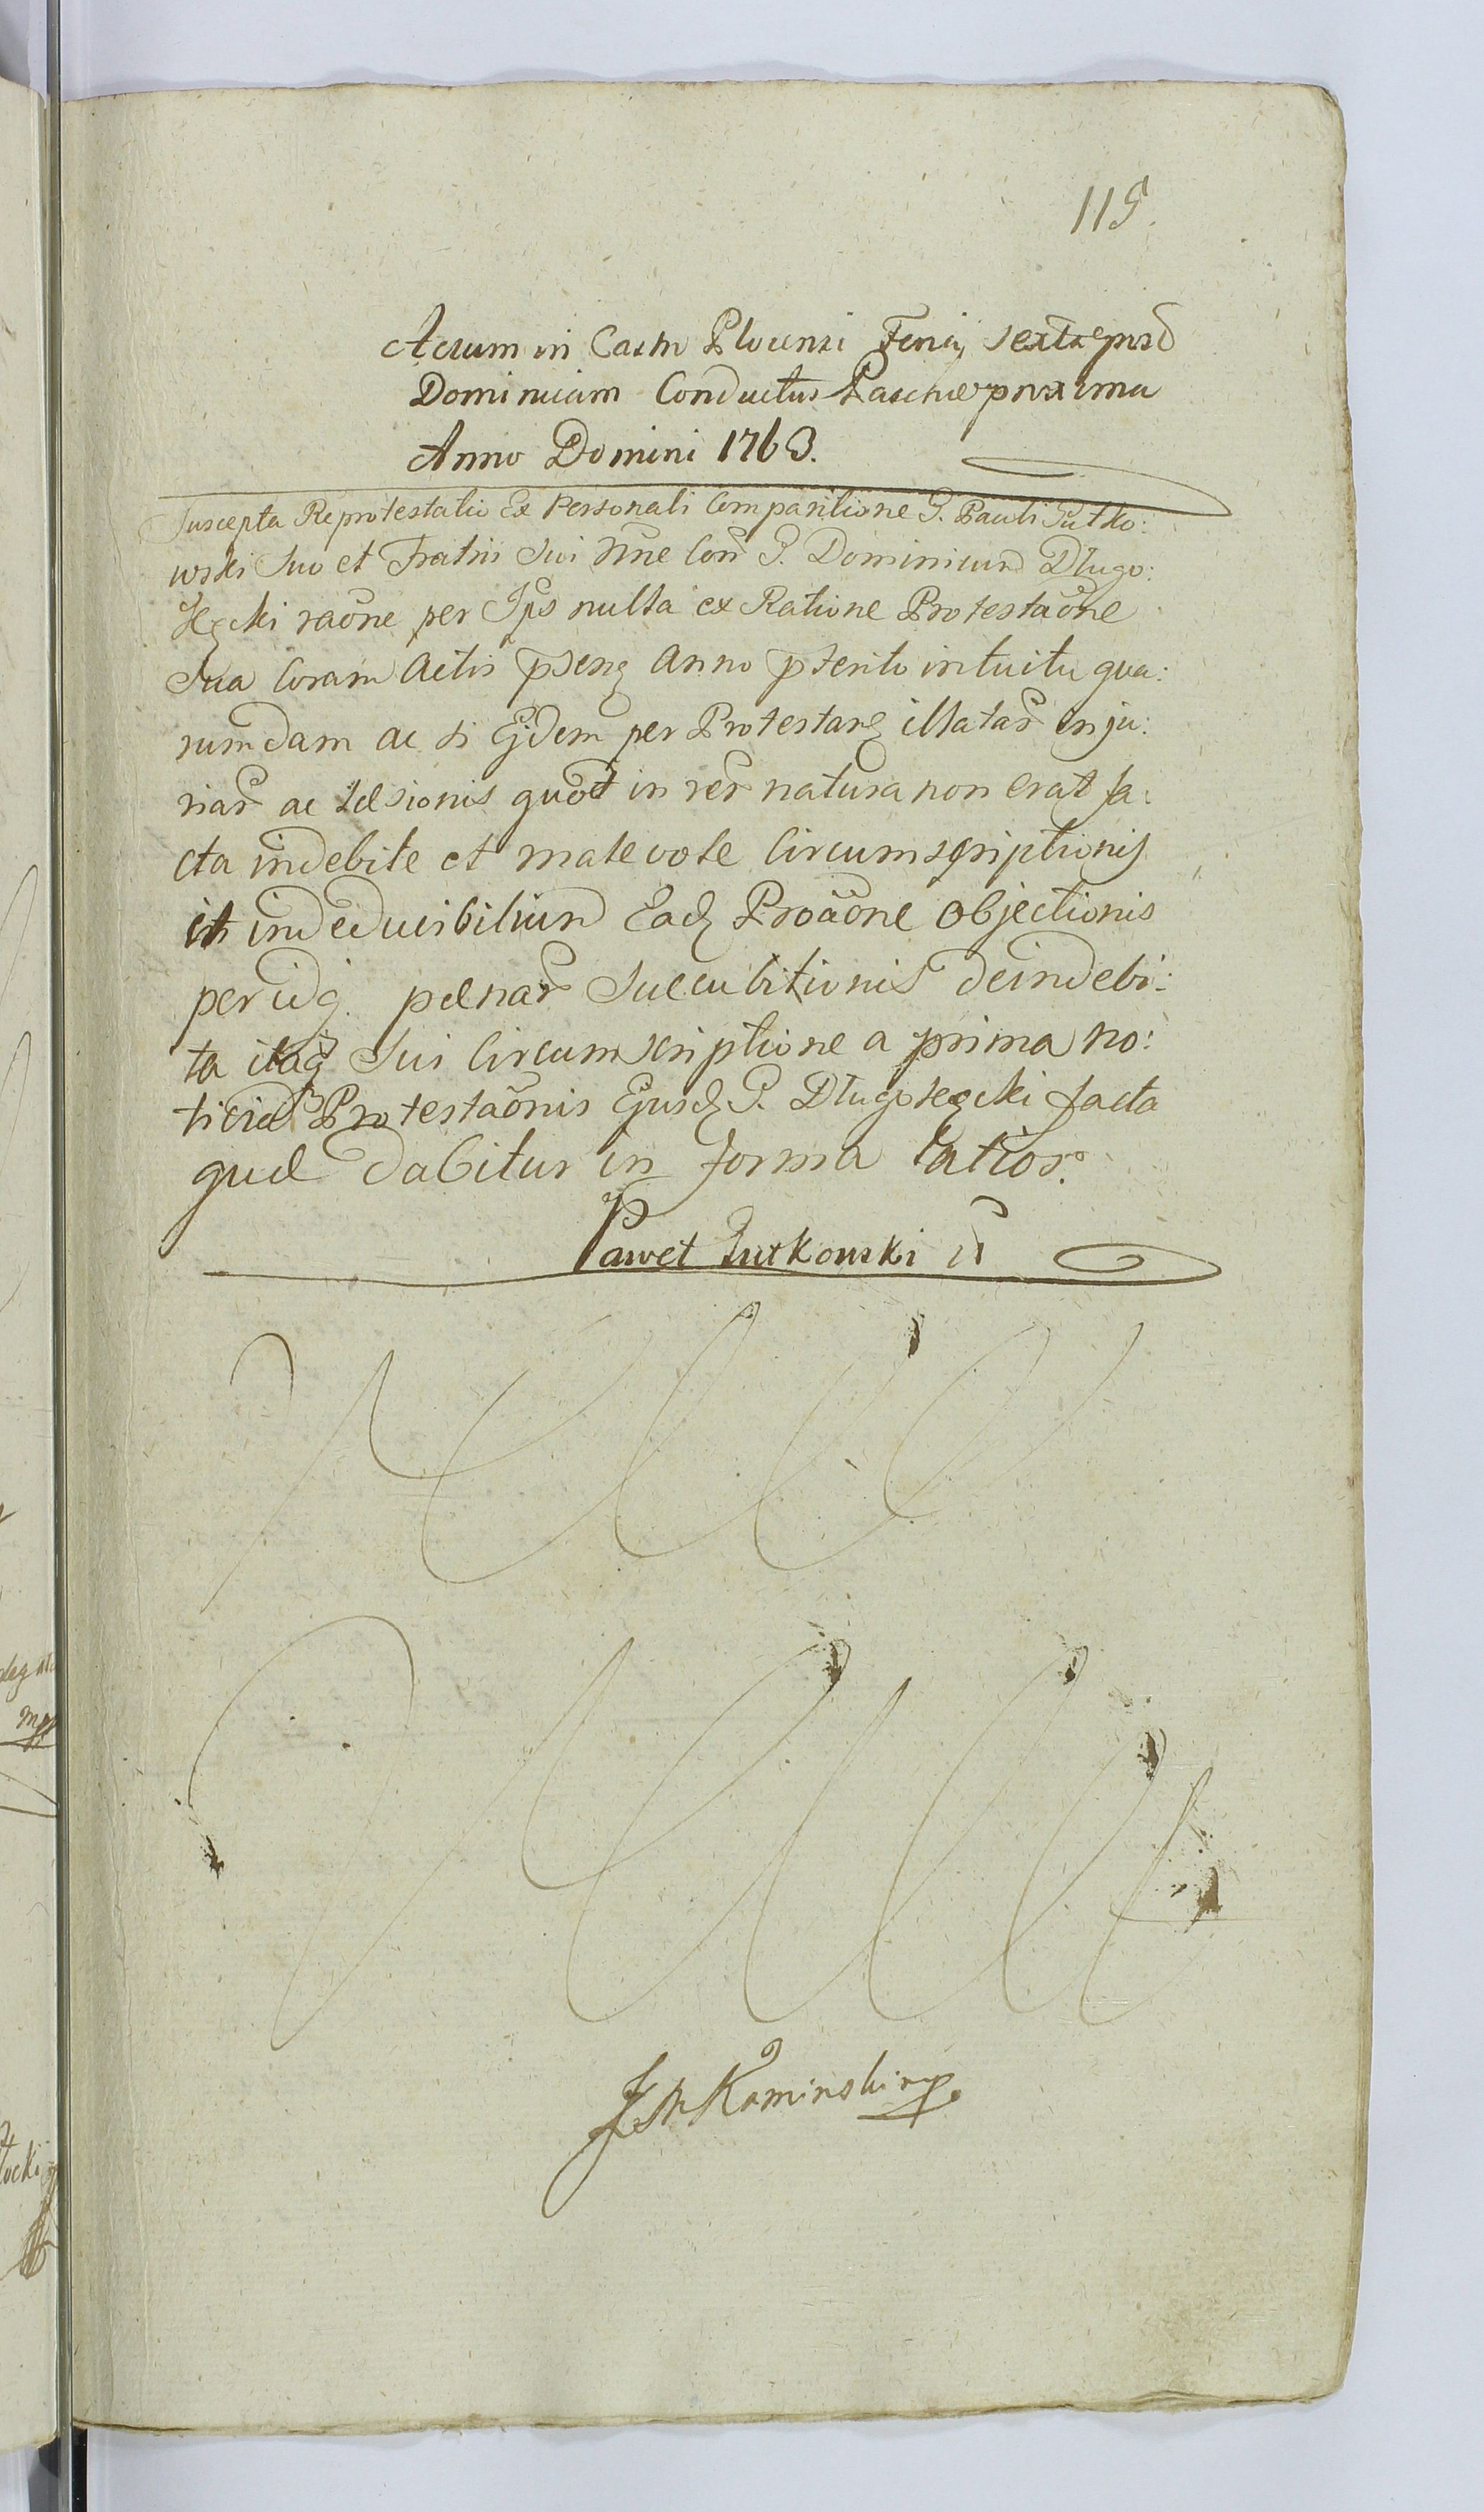 115.
Actum in Castro Plocensi Feria sexta post
Dominicam Conductus Paschae proxima
Anno Domini 1763.
Suscepta Reprotestatio Ex Personali Comparitione G. Pauli Gutko:
wski Suo et Fratris Sui Nne Con G. Dominicum Dlugo:
łęcki raōne per Ips nulla ex Ratione Protestaōne
Sua Coram Actis pñseng Anno pterito intuitu qua:
rumdam ac si Ejdem per Protestang illatar inju:
riar ac laesionis quōd in rer natura non erat fa:
cta indebite et malevole Circumscriptionis
indeducibilium Eadz Proāōne Objectionis
per idq paenar Succubitionis de indebi:
ta itaq Sui Circumscriptione a prima no:
ticia Protestaōnis Ejusdz G. Dlugołęcki facta
quae dabitur in forma latior.
Paweł Gutkowski
Kaminski mp.